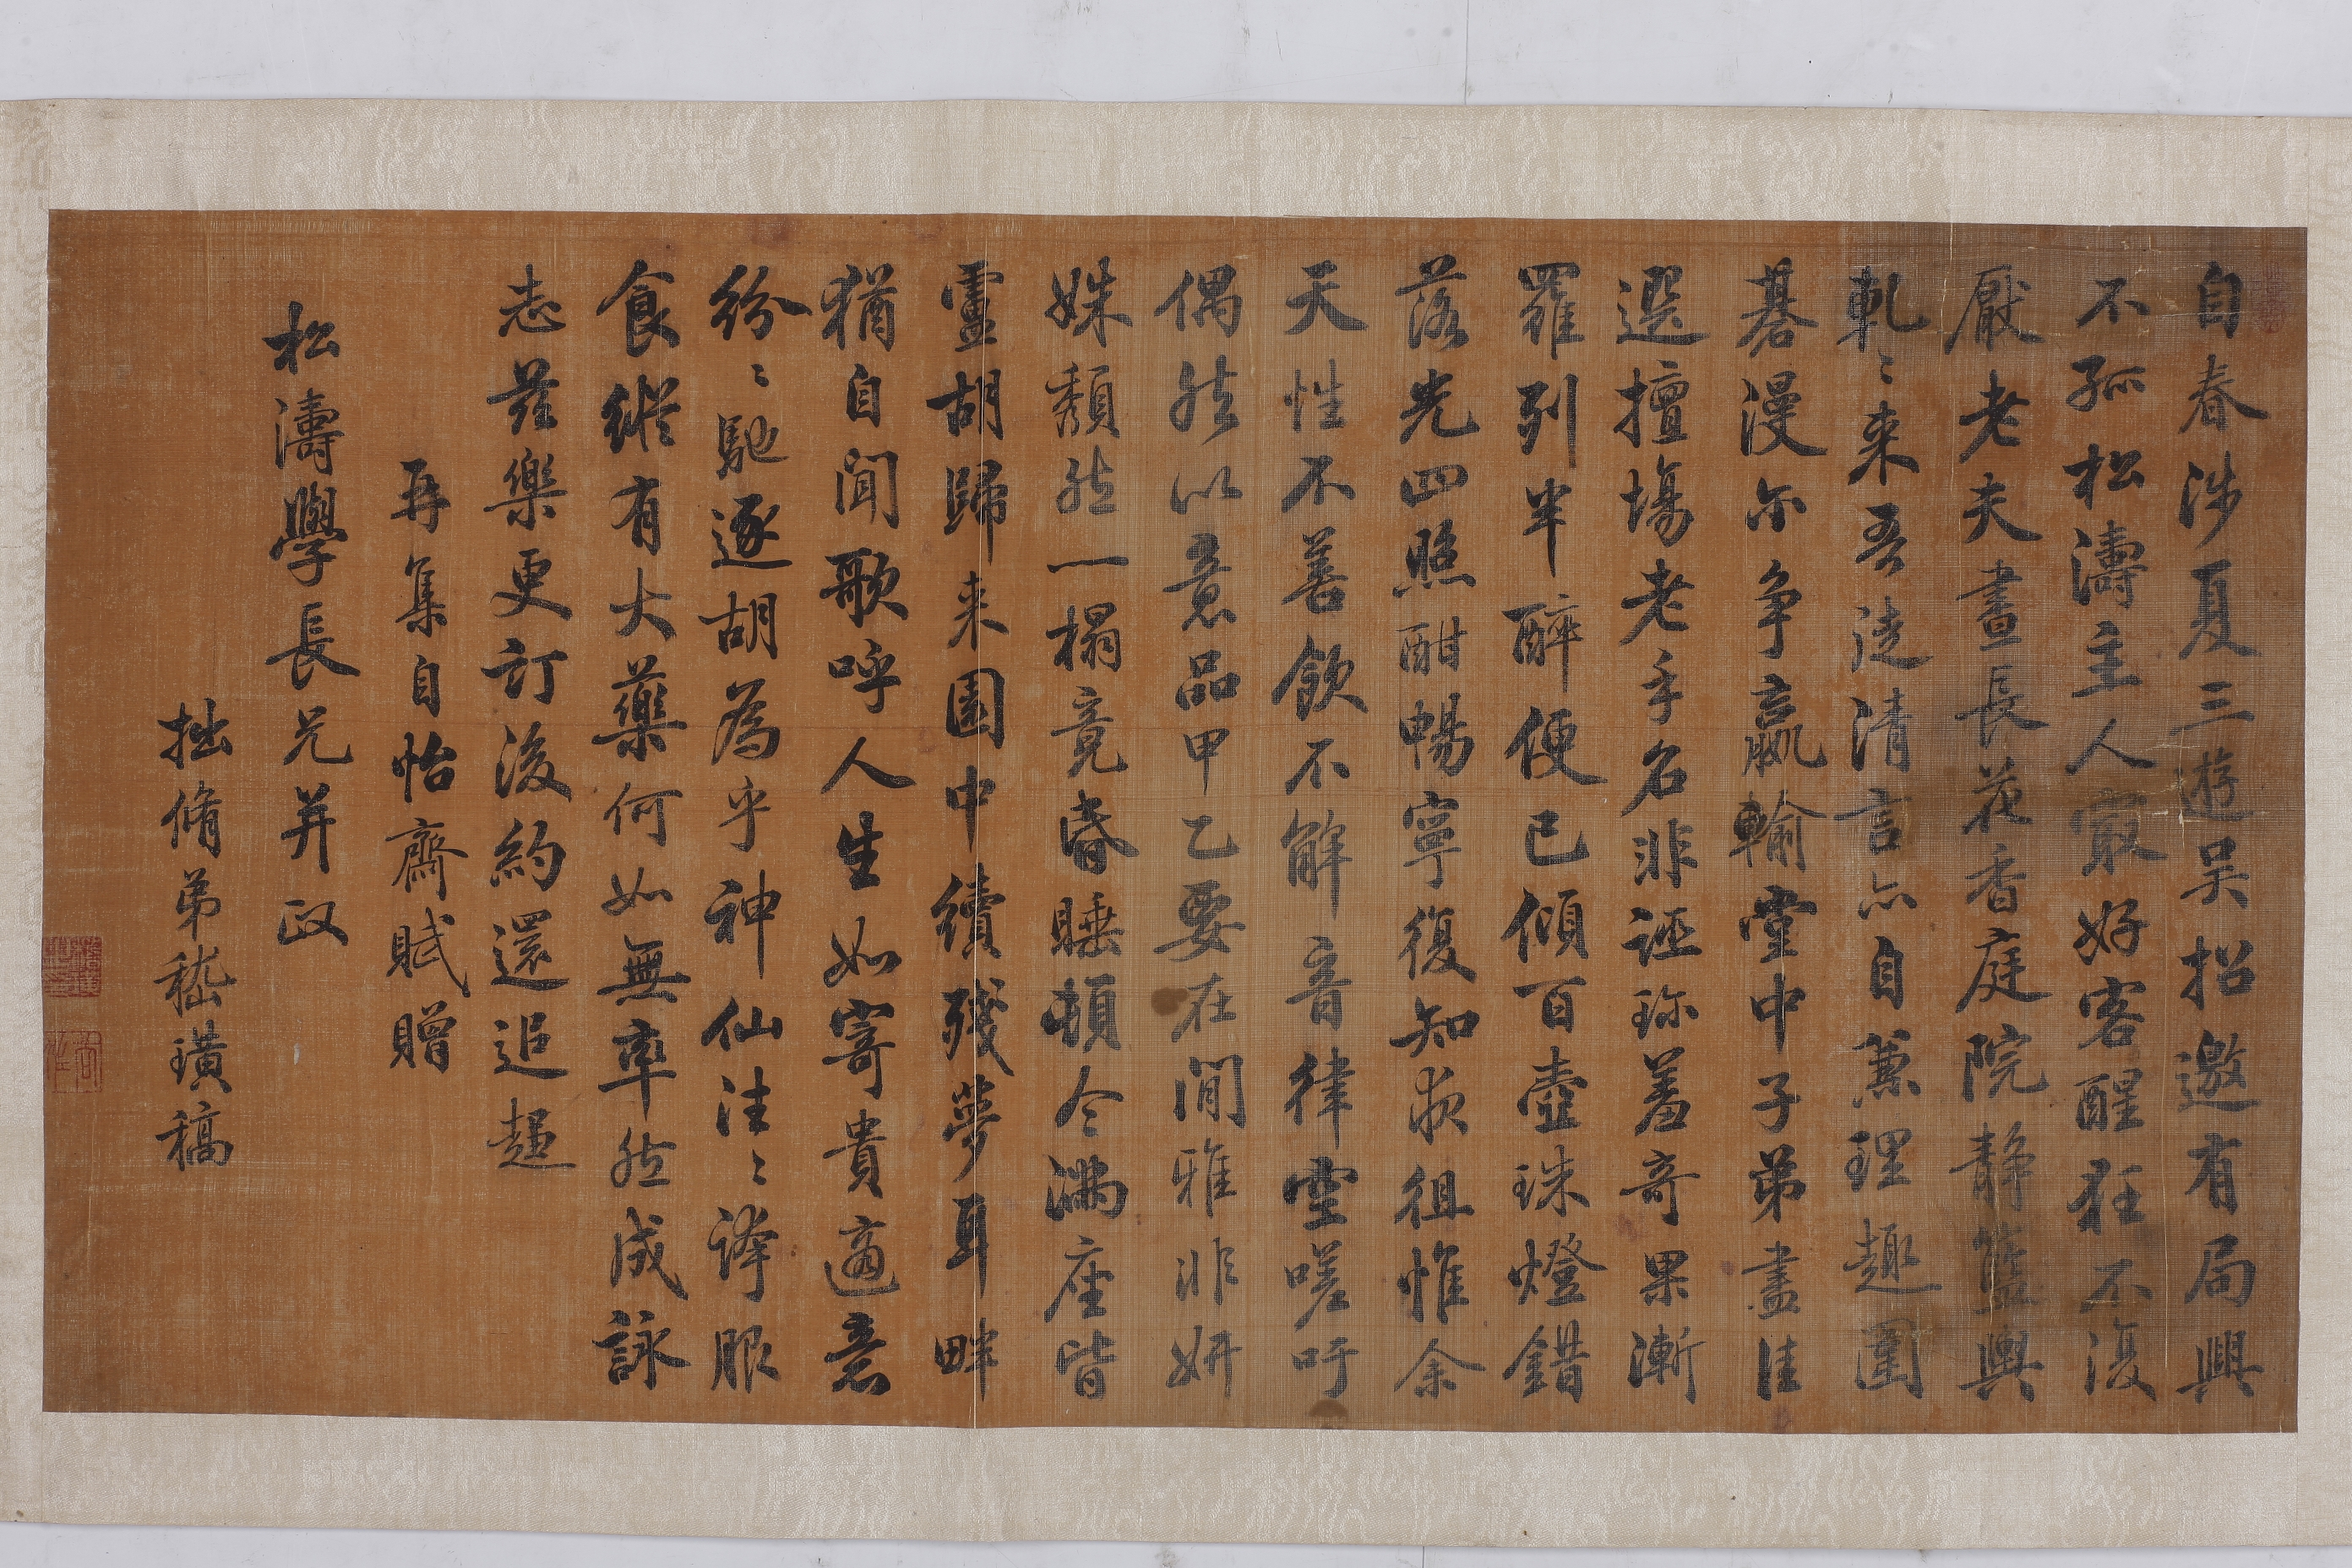 自春涉夏三遊吴招邀有局興
不孤松濤主人寂好客醒狂不復
厭老夫晝長花香庭院静籃輿
軋〻来吾徒清言亦自兼理趣圍
碁漫尔争贏輸堂中子弟盡佳
選擅場老手名非誣珎羞奇果漸
羅列半醉便已傾百壺珠燈錯
落光四照酣暢寧復知夜徂惟余
天性不善飲不解音律空嗟吁
偶然以意品甲乙要在閒雅非妍
姝頽然一榻竟昏睡頓令滿座皆
盧胡歸来園中續殘夢耳畔
猶自聞歌呼人生如寄貴適意
紛〻馳逐胡為乎神仙洼〻譁服
食縱有大藥何如無率然成詠
志茲樂更訂後約還追趨
再集自怡齋賦贈
松濤學長兄并政
拙脩弟嵇璜稿